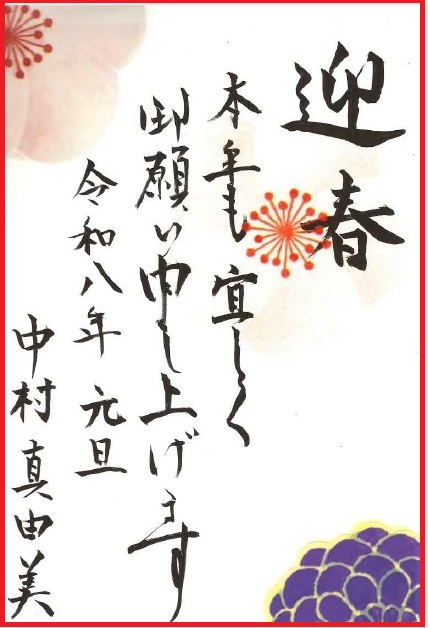 迎春
本年も宜しく
御願い申し上げます
令和八年 元旦
中村 真由美